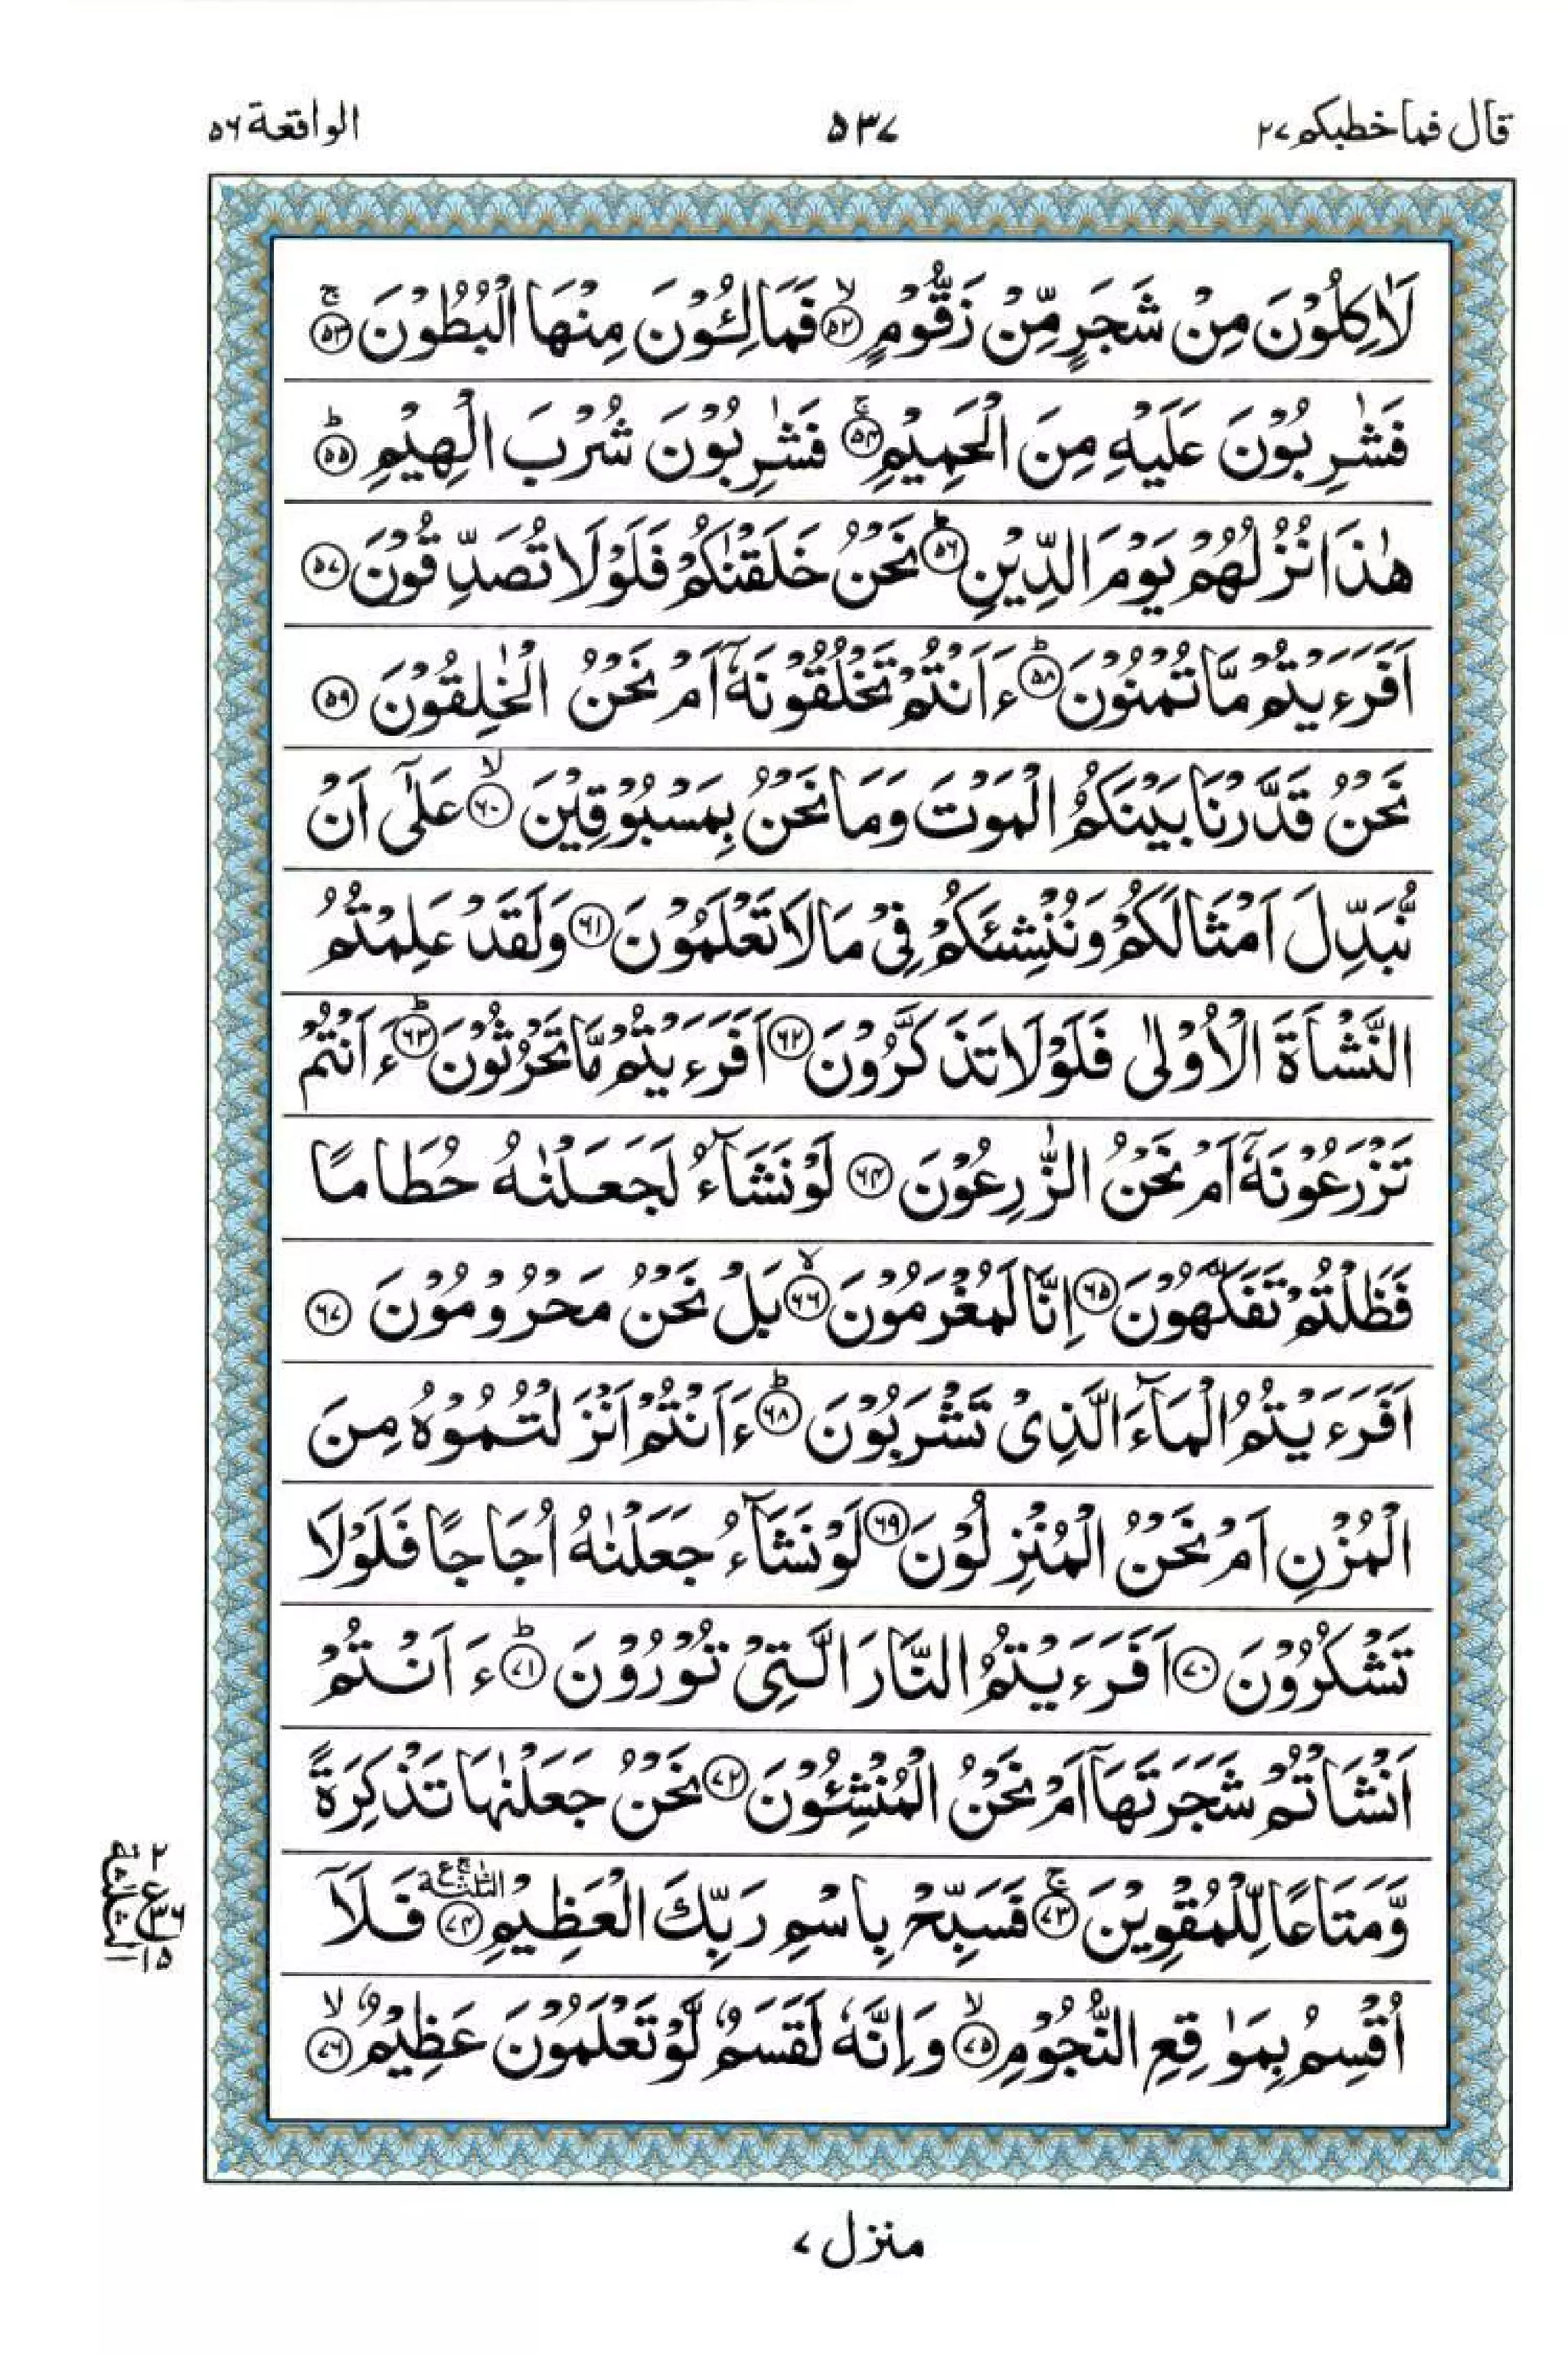 قال فما خطبكم ٢٧
٥٣٧
الواقعة ٥٦
لَاٰكِلُوْنَ مِنْ شَجَرٍ مِّنْ زَقُّوْمٍ ۙ﴿٥٢﴾ فَمَالِـُٔوْنَ مِنْهَا الْبُطُوْنَ ۚ﴿٥٣﴾
فَشٰرِبُوْنَ عَلَيْهِ مِنَ الْحَمِيْمِ ۚ﴿٥٤﴾ فَشٰرِبُوْنَ شُرْبَ الْهِيْمِ ؕ﴿٥٥﴾
هٰذَا نُزُلُهُمْ يَوْمَ الدِّيْنِ ؕ﴿٥٦﴾ نَحْنُ خَلَقْنٰكُمْ فَلَوْلَا تُصَدِّقُوْنَ ﴿٥٧﴾
اَفَرَءَيْتُمْ مَّا تُمْنُوْنَ ؕ﴿٥٨﴾ ءَاَنْتُمْ تَخْلُقُوْنَهٗۤ اَمْ نَحْنُ الْخٰلِقُوْنَ ﴿٥٩﴾
نَحْنُ قَدَّرْنَا بَيْنَكُمُ الْمَوْتَ وَمَا نَحْنُ بِمَسْبُوْقِيْنَ ۙ﴿٦٠﴾ عَلٰۤى اَنْ
نُّبَدِّلَ اَمْثَالَكُمْ وَنُنْشِئَكُمْ فِيْ مَا لَا تَعْلَمُوْنَ ﴿٦١﴾ وَلَقَدْ عَلِمْتُمُ
النَّشْاَةَ الْاُوْلٰى فَلَوْلَا تَذَكَّرُوْنَ ﴿٦٢﴾ اَفَرَءَيْتُمْ مَّا تَحْرُثُوْنَ ؕ﴿٦٣﴾ ءَاَنْتُمْ
تَزْرَعُوْنَهٗۤ اَمْ نَحْنُ الزّٰرِعُوْنَ ﴿٦٤﴾ لَوْ نَشَآءُ لَجَعَلْنٰهُ حُطَامًا
فَظَلْتُمْ تَفَكَّهُوْنَ ﴿٦٥﴾ اِنَّا لَمُغْرَمُوْنَ ۙ﴿٦٦﴾ بَلْ نَحْنُ مَحْرُوْمُوْنَ ﴿٦٧﴾
اَفَرَءَيْتُمُ الْمَآءَ الَّذِيْ تَشْرَبُوْنَ ؕ﴿٦٨﴾ ءَاَنْتُمْ اَنْزَلْتُمُوْهُ مِنَ
الْمُزْنِ اَمْ نَحْنُ الْمُنْزِلُوْنَ ﴿٦٩﴾ لَوْ نَشَآءُ جَعَلْنٰهُ اُجَاجًا فَلَوْلَا
تَشْكُرُوْنَ ﴿٧٠﴾ اَفَرَءَيْتُمُ النَّارَ الَّتِيْ تُوْرُوْنَ ؕ﴿٧١﴾ ءَاَنْتُمْ
اَنْشَاْتُمْ شَجَرَتَهَاۤ اَمْ نَحْنُ الْمُنْشِـُٔوْنَ ﴿٧٢﴾ نَحْنُ جَعَلْنٰهَا تَذْكِرَةً
وَّمَتَاعًا لِّلْمُقْوِيْنَ ۚ﴿٧٣﴾ فَسَبِّحْ بِاسْمِ رَبِّكَ الْعَظِيْمِ ﴿٧٤﴾ الثلثة ع فَلَاۤ
اُقْسِمُ بِمَوٰقِعِ النُّجُوْمِ ۙ﴿٧٥﴾ وَاِنَّهٗ لَقَسَمٌ لَّوْ تَعْلَمُوْنَ عَظِيْمٌ ۙ﴿٧٦﴾
٢ ع ٣٦ ١٥ الثلثة
منزل ٧